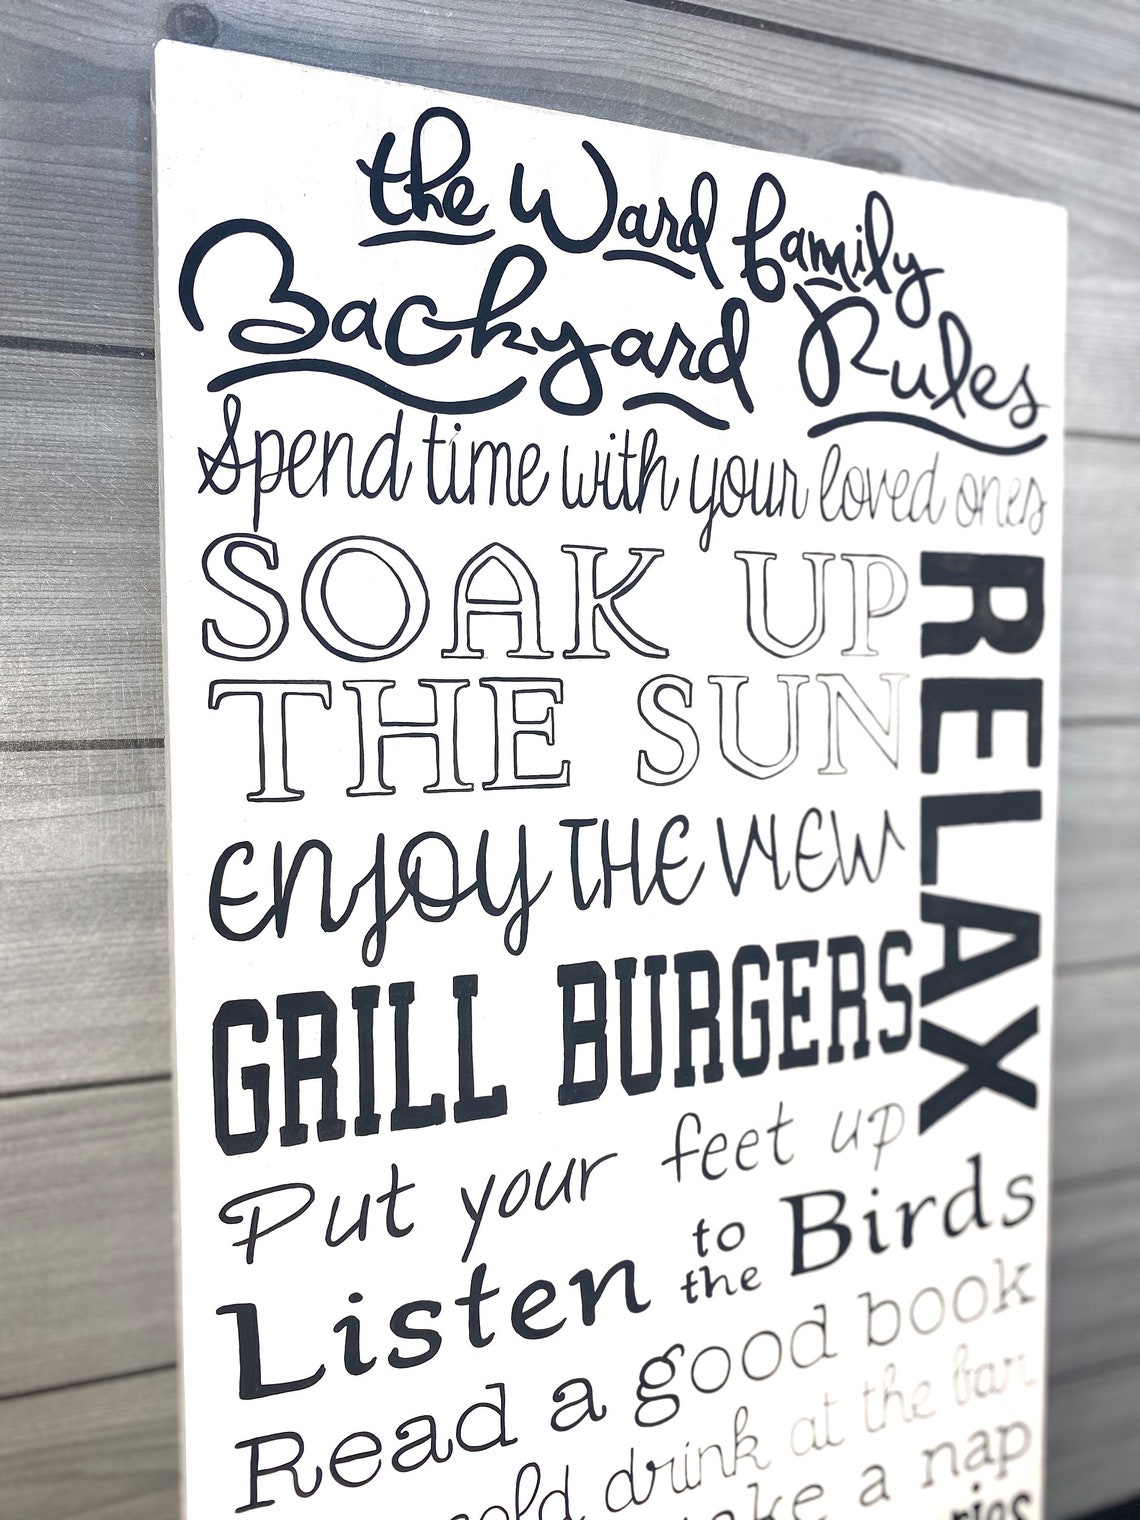 the Ward family
Backyard Rules
Spend time with your loved ones
SOAK UP
THE SUN
RELAX
enjoy THE VIEW
GRILL BURGERS
Put your feet up
Listen to the Birds
Read a good book
cold drink at the bar
a nap